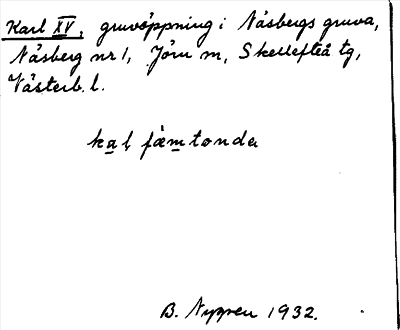 Karl XV, gruvöppning i Näsbergs gruva,
Näsberg nr 1, Jörn m, Skellefteå tg,
Västerb. l.
kal fæmtonda
B. Nygren 1932.